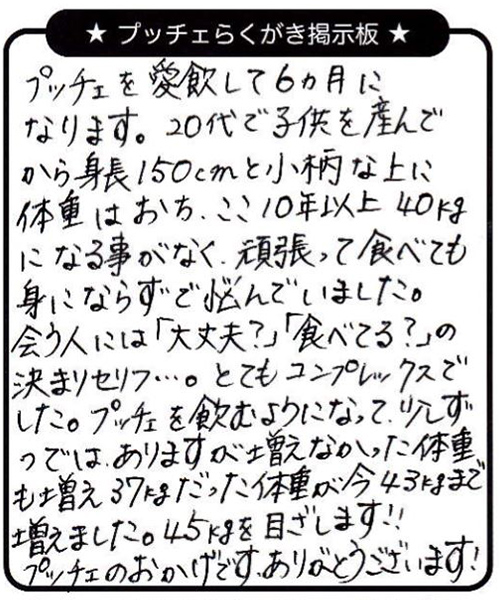 ★ プッチェらくがき掲示板 ★
プッチェを愛飲して6ヵ月に
なります。20代で子供を産んで
から身長150cmと小柄な上に
体重はおち、ここ10年以上40kg
になる事がなく、頑張って食べても
身にならずで悩んでいました。
会う人には「大丈夫?」「食べてる?」の
決まりセリフ…。とてもコンプレックスで
した。プッチェを飲むようになって、少しず
つでは、ありますが増えなかった体重
も増え37kgだった体重が今43kgまで
増えました。45kgを目ざします!!
プッチェのおかげです。ありがとうございます!